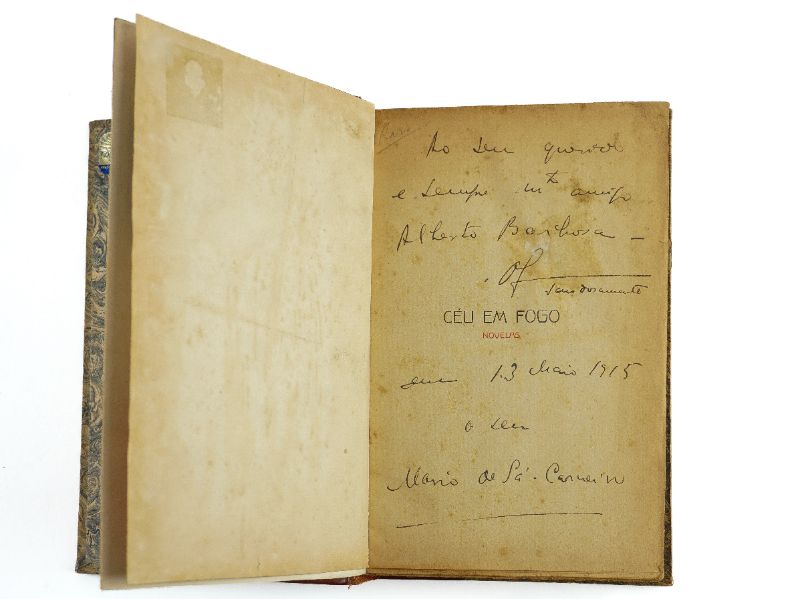 Raro
Ao seu querido
e sempre mto amigo
Alberto Barbosa —
Of.
saudosamente
CÉU EM FOGO
NOVELAS
em 13 Maio 1915
o seu
Mario de Sá-Carneiro